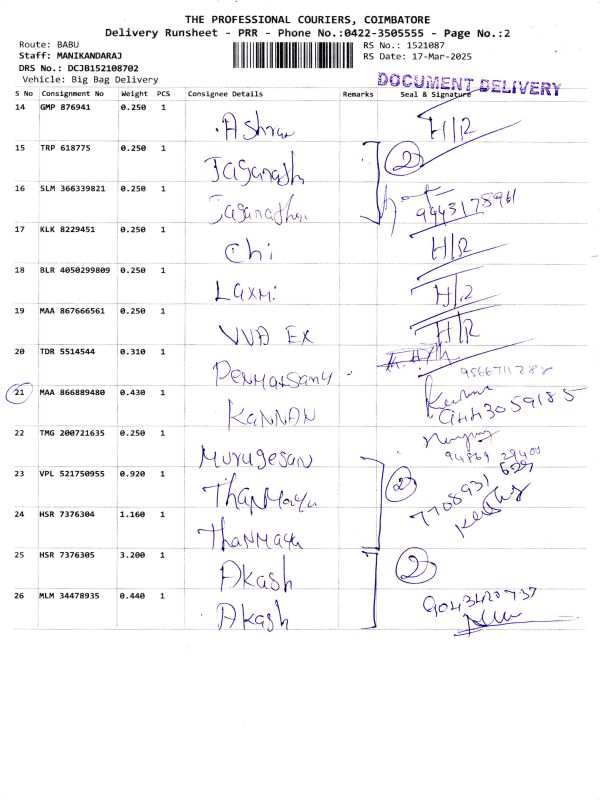 THE PROFESSIONAL COURIERS, COIMBATORE
Delivery Runsheet - PRR - Phone No.:0422-3505555 - Page No.:2
Route: BABU RS No.: 1521087
Staff: MANIKANDARAJ RS Date: 17-Mar-2025
DRS No.: DCJB152108702
Vehicle: Big Bag Delivery DOCUMENT DELIVERY
S No Consignment No Weight PCS Consignee Details Remarks Seal & Signature
14 GMP 876941 0.250 1 H/R
15 TRP 618775 0.250 1 Jaganath 2
16 SLM 366339821 0.250 1 9443175961
17 KLK 8229451 0.250 1 Chi H/R
18 BLR 4050299809 0.250 1 Laxmi H/R
19 MAA 867666561 0.250 1 VVA EX H/R
20 TDR 5514544 0.310 1
21 MAA 866889480 0.430 1 KANNAN
22 TMG 200721635 0.250 1 Murugesan
23 VPL 521750955 0.920 1 Thanmaya 2
24 HSR 7376304 1.160 1 Thanmaya
25 HSR 7376305 3.200 1 Akash 2
26 MLM 34478935 0.440 1 Akash